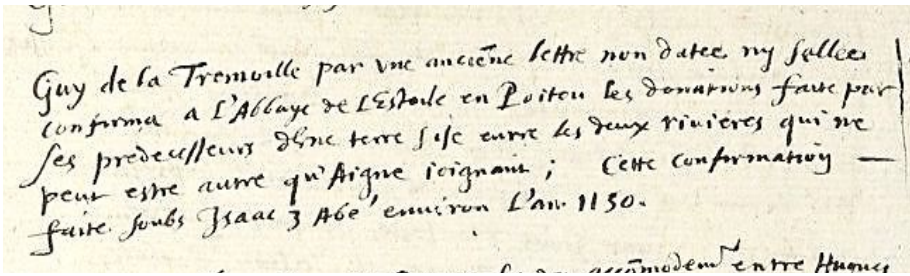 Guy de la Tremoille par vne anciēne lettre non datee ny sellee
confirma a L'Abbaye de L'Estoile en Poitou les donations faite par
ses predecesseurs d'vne terre sise entre les deux riuieres qui ne
peut estre autre qu'Aigne ioignant ; Cette confirmation —
faite soubs Isaac 3 Abé enuiron L'an 1150.
accōmodemt entre Hugues